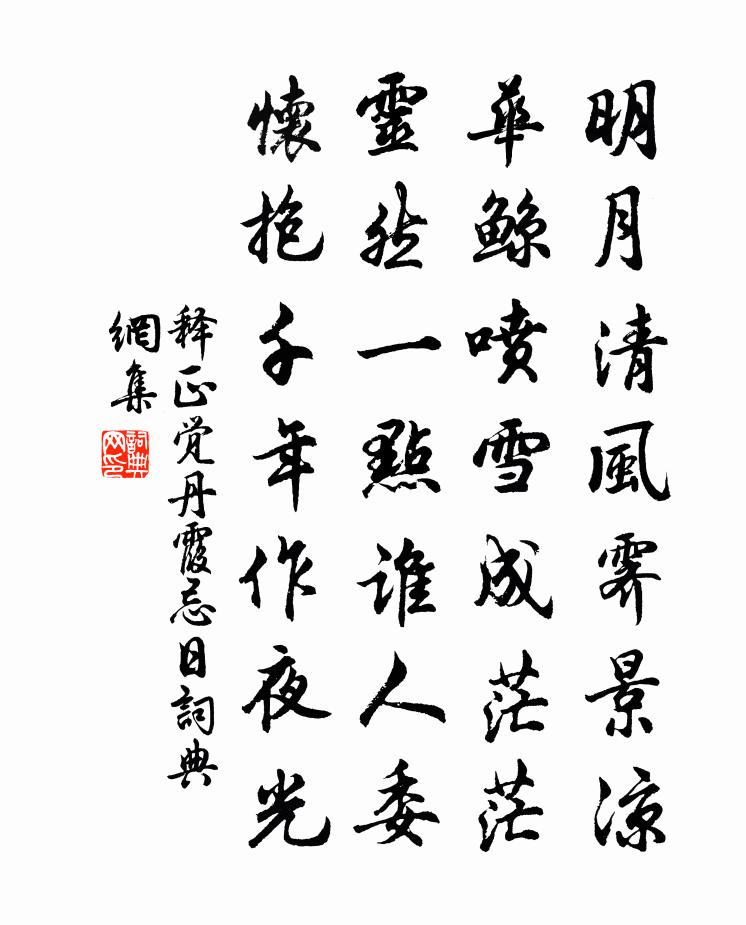 明月清風霽景涼
華鲸噴雪成茫茫
靈然一點誰人委
懷抱千年作夜光
释正觉丹霞忌日詞典
網集
詞典
网印